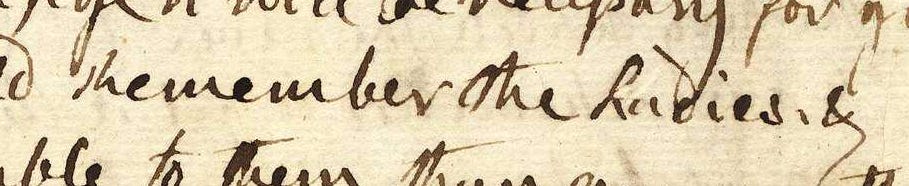 will be necessary for
Remember the Ladies, &
to them than